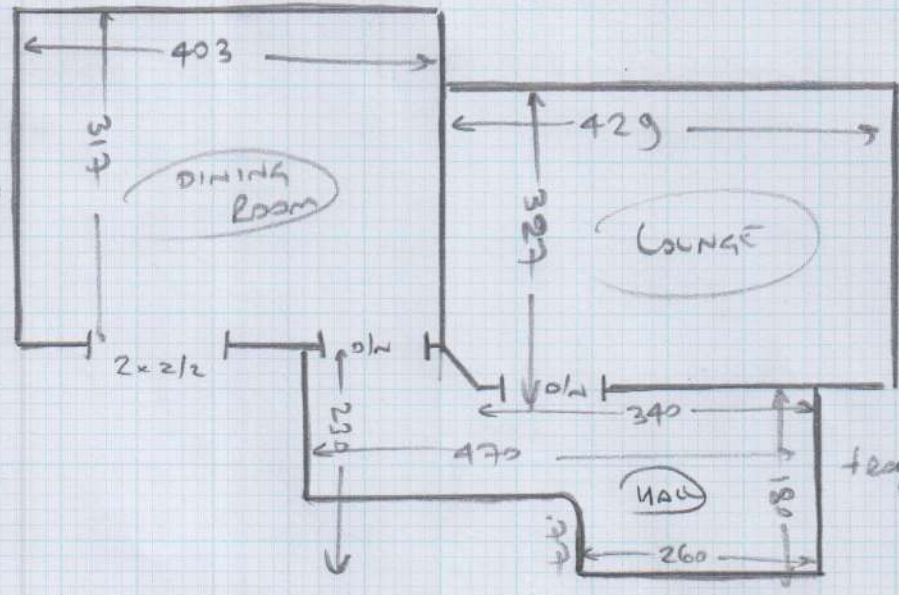 403
317
DINING
ROOM
429
327
LOUNGE
2x2/2
D/W
D/W
340
470
HALL
180
260